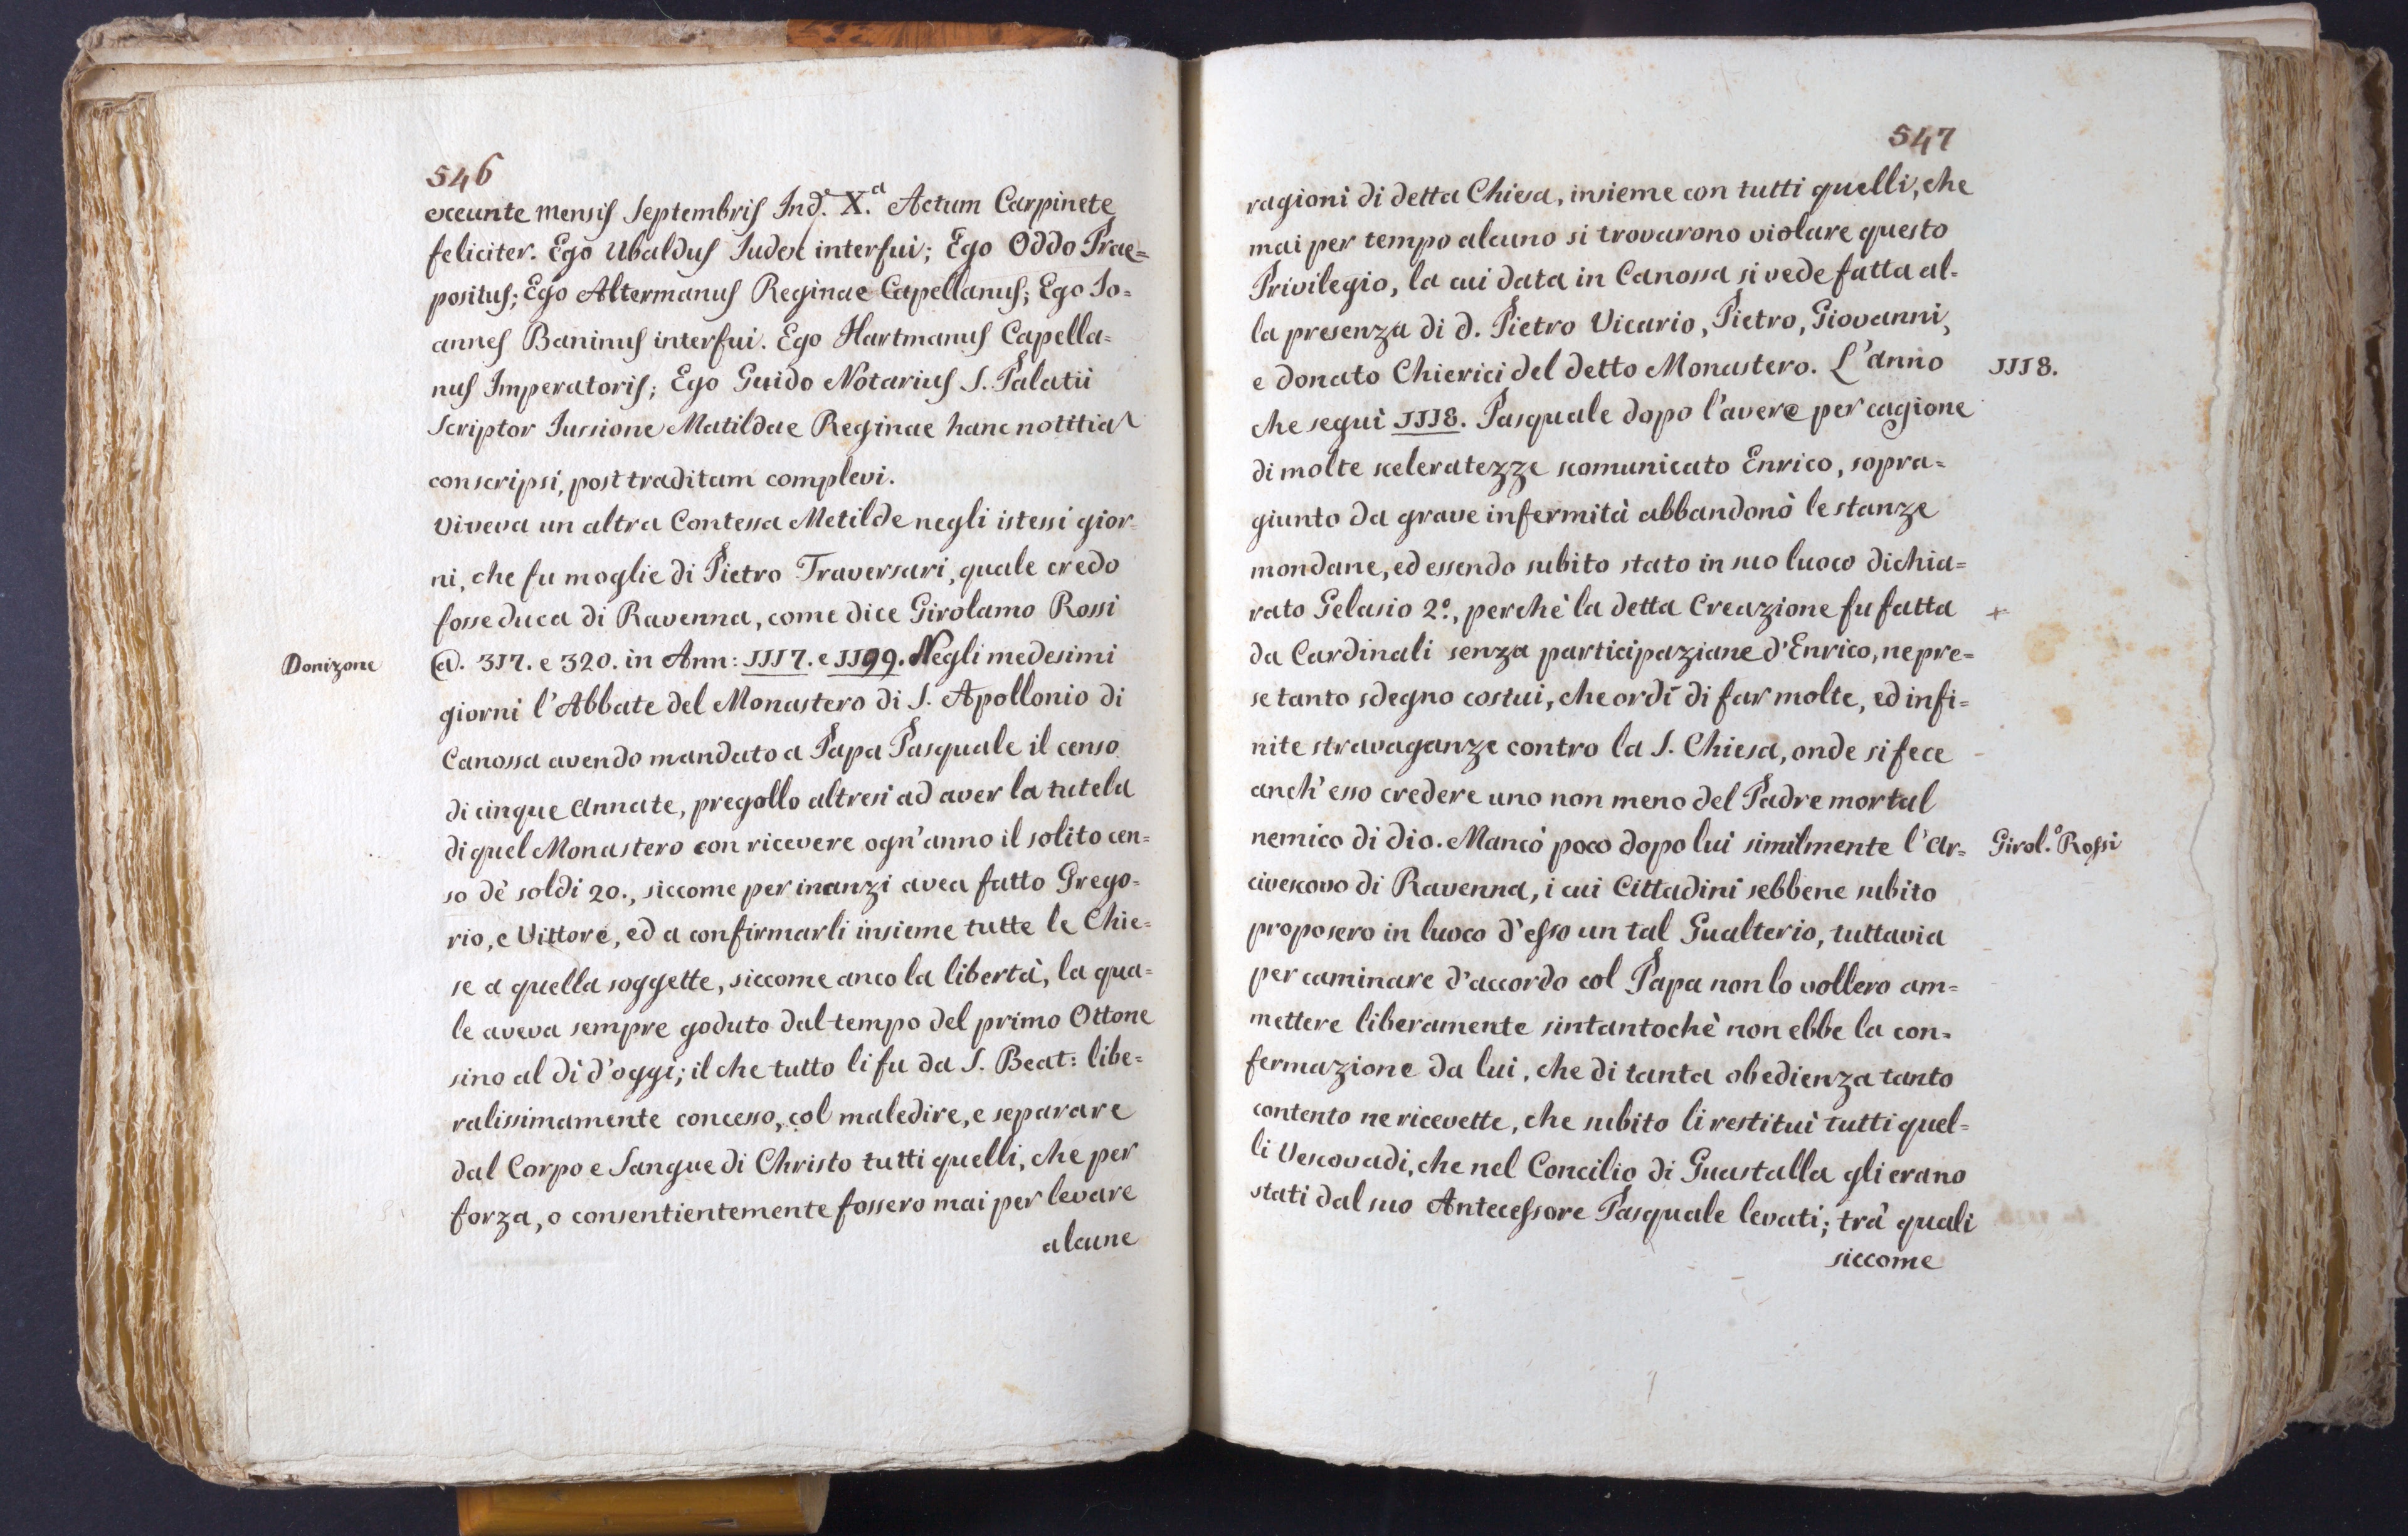 546
exeunte mensis Septembris Ind. X.a Actum Carpinete
feliciter. Ego Ubaldus Iudex interfui; Ego Oddo Prae=
positus; Ego Altermanus Reginae Capellanus; Ego Io=
annes Baninus interfui. Ego Hartmanus Capella=
nus Imperatoris; Ego Guido Notarius S. Palatii
Scriptor Iussione Matildae Reginae hanc notitia
conscripsi, post traditam complevi.
Viveva un altra Contessa Metilde negli istessi gior=
ni, che fu moglie di Pietro Traversari, quale credo
fosse duca di Ravenna, come dice Girolamo Rossi
Donizone
@. 317. e 320. in Ann: 1117. e 1199. Negli medesimi
giorni l'Abbate del Monastero di S. Apollonio di
Canossa avendo mandato a Papa Pasquale il censo
di cinque Annate, pregollo altresi ad aver la tutela
di quel Monastero con ricevere ogn'anno il solito cen=
so dè soldi 20., siccome per inanzi avea fatto Grego=
rio, e Vittore, ed a confirmarli insieme tutte le Chie=
se a quella soggette, siccome anco la libertà, la qua=
le aveva sempre goduto dal tempo del primo Ottone
sino al dì d'oggi; il che tutto li fu da S. Beat: libe=
ralissimamente concesso, col maledire, e separare
dal Corpo e Sangue di Christo tutti quelli, che per
forza, o consentientemente fossero mai per levare
alcune
547
ragioni di detta Chiesa, insieme con tutti quelli, che
mai per tempo alcuno si trovarono violare questo
Privilegio, la cui data in Canossa si vede fatta al=
la presenza di d. Pietro Vicario, Pietro, Giovanni,
e Donato Chierici del detto Monastero. L'anno
1118.
che seguì 1118. Pasquale dopo l'avere per cagione
di molte sceleratezze scomunicato Enrico, sopra=
giunto da grave infermità abbandonò le stanze
mondane, ed essendo subito stato in suo luoco dichia=
rato Gelasio 2º., perchè la detta Creazione fu fatta
+
da Cardinali senza participazione d'Enrico, ne pre=
se tanto sdegno costui, che ordì di far molte, ed infi=
nite stravaganze contro la S. Chiesa, onde si fece
anch'esso credere uno non meno del Padre mortal
nemico di dio. Mancò poco dopo lui similmente l'Ar=
Girol.º Rossi
civescovo di Ravenna, i cui Cittadini sebbene subito
proposero in luoco d'esso un tal Gualterio, tuttavia
per caminare d'accordo col Papa non lo vollero am=
mettere liberamente sintantochè non ebbe la con=
fermazione da lui, che di tanta obedienza tanto
contento ne ricevette, che subito li restituì tutti quel=
li Vescovadi, che nel Concilio di Guastalla gli erano
stati dal suo Antecessore Pasquale levati; trà quali
siccome